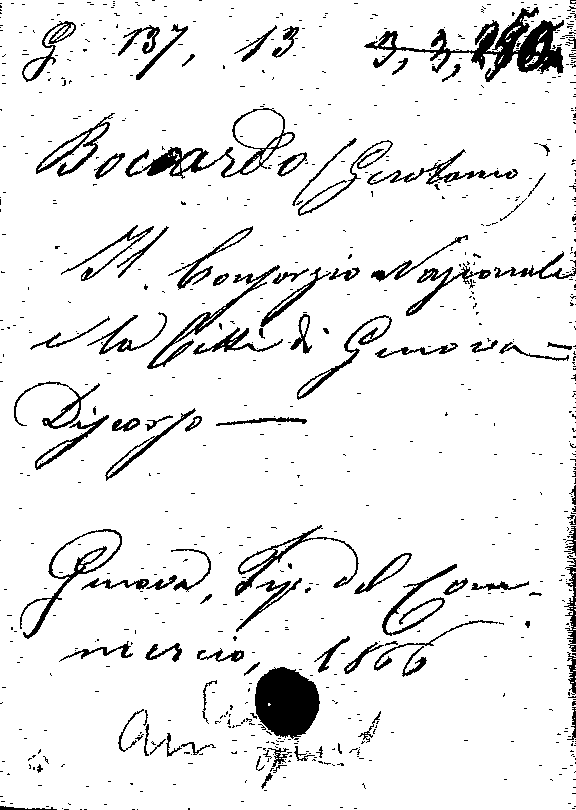 G. 137, 13 3, 3,
Boccardo (Gerolamo)
Il Consorzio Nazionale
e la Città di Genova —
Discorso —
Genova, Tip. del Com-
mercio, 1866